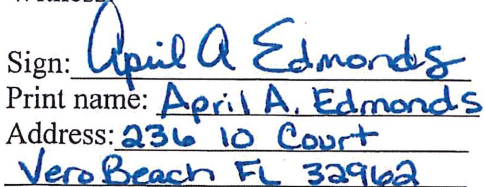 Sign: April A Edmonds
Print name: April A. Edmonds
Address: 236 10 Court
Vero Beach FL 32962